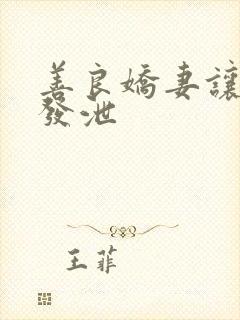 善良嬌妻讓
發泄
王菲